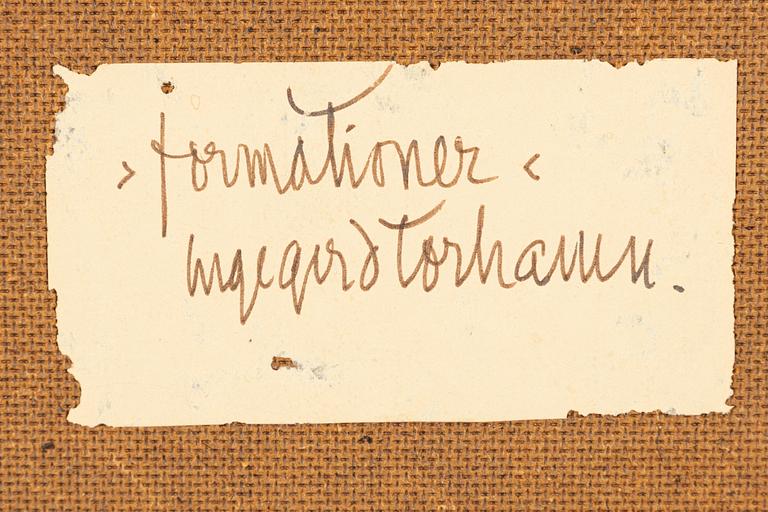 > formationer <
Ingegerd Torhamn.